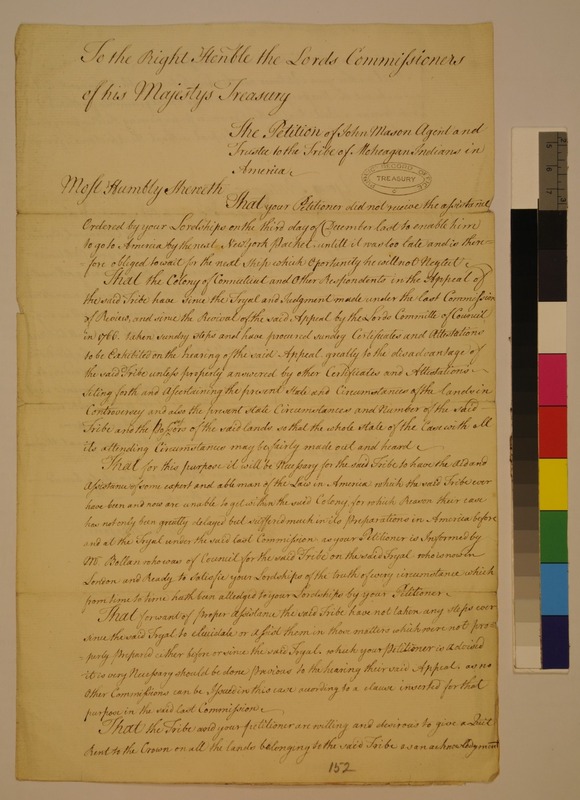 To the Right Honble the Lords Commissioners
of his Majestys Treasury
The Petition of John Mason Agent and
Trustee to the Tribe of Moheagan Indians in
America
PUBLIC RECORD OFFICE
TREASURY
Most Humbly Sheweth
That your Petitioner did not receive the assistance
Ordered by your Lordships on the third day of December last to enable him
to go to America by the next New York Packet, untill it was too late and is there-
fore obliged to wait for the next Ship which oportunity he will not Neglect
That the Colony of Connecticut and Other Respondents in the Appeal of
the said Tribe have since the Tryal and Judgment made under the last Commission
of Review, and since the Revival of the said Appeal by the Lords Committe of Council
in 1766. taken sundry steps and have procured sundry Certificates and Attestations
to be Exhibited on the hearing of the said Appeal greatly to the disadvantage of
the said Tribe unless properly answered by other Certificates and Attestations
seting forth and Ascertaining the present State and Circumstances of the lands in
Controversy and also the present state Circumstances and Number of the said
Tribe and the Possors of the said lands, so that the whole State of the Case with All
its attending Circumstances may be fairly made out and heard
That for this purpose it will be Necessary for the said Tribe to have the Aid and
Assistance of some expert and able man of the Law in America which the said Tribe ever
have been and now are unable to get within the said Colony, for which Reason their case
has not only been greatly delayed but suffered much in its Preparations in America before
and at the Tryal under the said last Commission as your Petitioner is Informed by
Mr. Bollan who was of Council for the said Tribe on the said Tryal who is now in
London and Ready to Satisfie your Lordships of the truth of every circumstance which
from time to time hath been alledged to your Lordships by your Petitioner
That for want of Proper Assistance the said Tribe have not taken any steps ever
since the said Tryal to elucidate or assist them in those matters which were not pro-
perly Prepared either before or since the said Tryal, which your Petitioner is advised
it is very Necessary should be done Previous to the hearing their said Appeal, as no
Other Commissions can be Issued in this case according to a clause inserted for that
purpose in the said last Commission
That the Tribe and your petitioner are willing and desirous to give a Quit
Rent to the Crown on all the lands belonging to the said Tribe as an acknowledgment
152